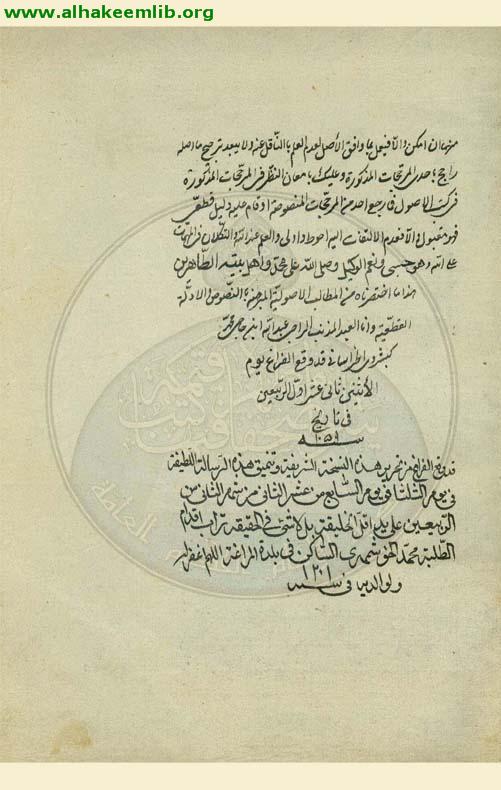 www.alhakeemlib.org
منهما ان امكن والا فيعمل بما وافق الأصل لعدم العلم بالناقل عنه ولا يبعد ترجيح ما اصله
راجح باحدى المرجحات المذكورة وعليك بامعان النظر فى المرجحات المذكورة
فى كتب الاصول فما رجع احد من المرجحات المنصوصة او قام عليه دليل قطعى
فهو مقبول والا فعدم الالتفات اليه احوط واولى والعلم عند الله والتكلان فى المهمات
على الله وهو حسبى ونعم الوكيل وصلى الله على محمد واهل بيته الطاهرين
هذا ما اختصرناه من المطالب الاصولية المبرهنة بالنصوص والادلة
القطعية وانا العبد المذنب الراجى عبد الله ابن حاجى محمد
الخراسانى قد وقع الفراغ يوم
الأثنين ثانى عشر اول الربيعين
فى تاريخ
سنه ١٠٥٩
قد وقع الفراغ من تحرير هذه النسخة الشريفة وتنميق هذه الرسالة اللطيفة
فى يوم الثلثا فى يوم السابع من عشر الثانى من شهر الثانى من
الربيعين على يد اقل الخليقة بل لا شئ فى الحقيقة تراب اقدام
الطلبة محمد الساكن فى بلدة المراغة اللهم اغفر له
ولوالديه فى سنه ١٢٠١